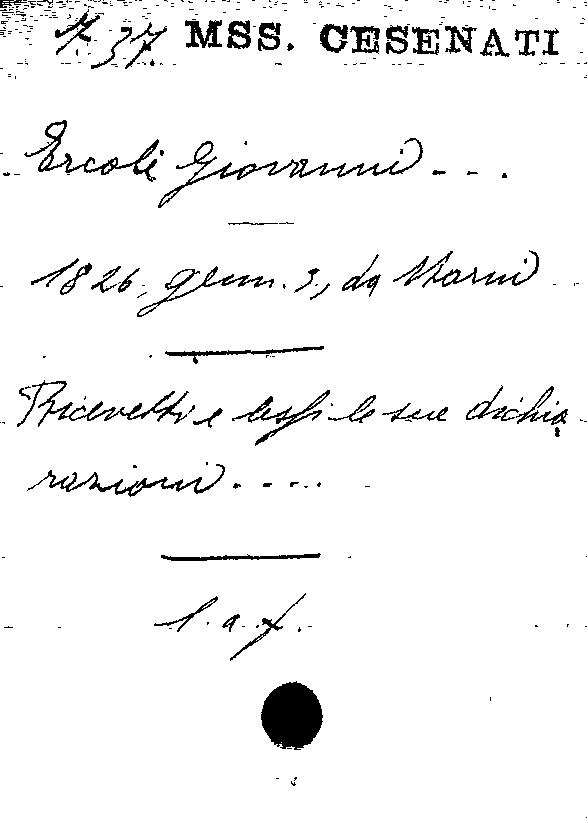 37. MSS. CESENATI
Ercoli Giovanni - - .
1826, genn. 3, da Narni
Ricevetti e lessi le sue dichia
razioni . . . .
l. a. f.